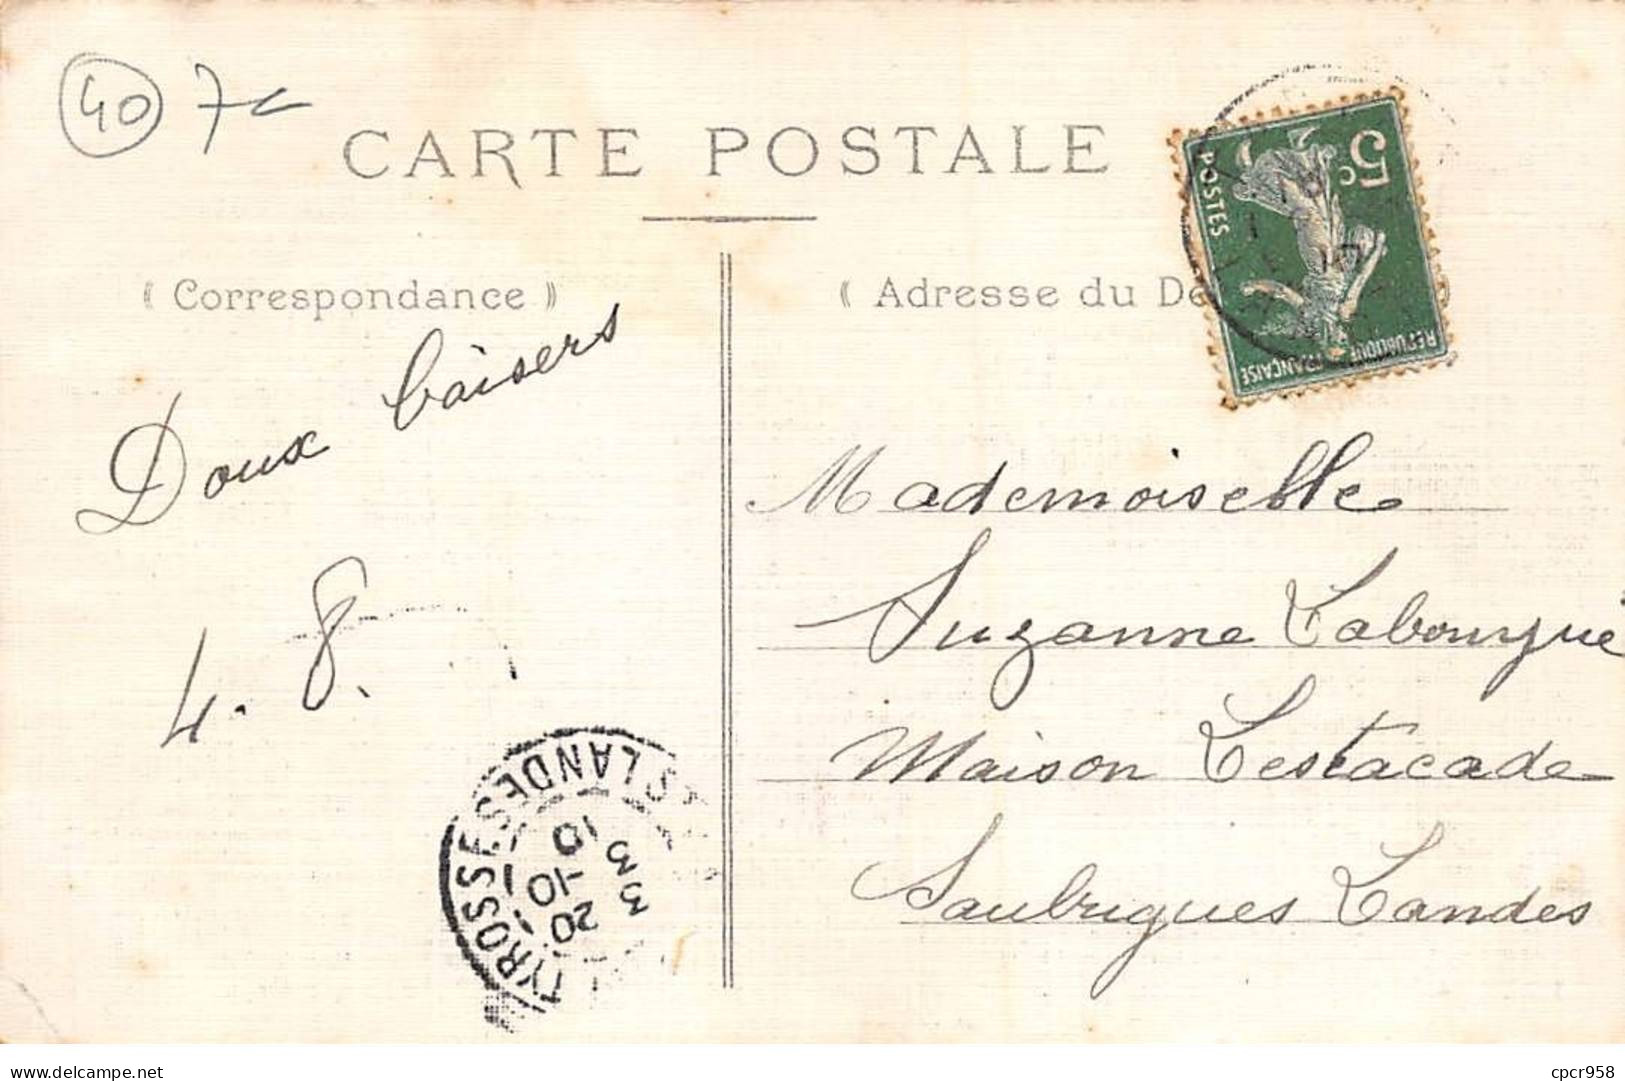 40 7c
CARTE POSTALE
« Correspondance »
« Adresse du De
5c
POSTES
RÉPUBLIQUE FRANÇAISE
Doux baisers
4. 8.
Mademoiselle
Suzanne Labourgue
Maison Lestacade
Saubrigues Landes
TYROSSE LANDES
3 3
20-10
10
cpcr958